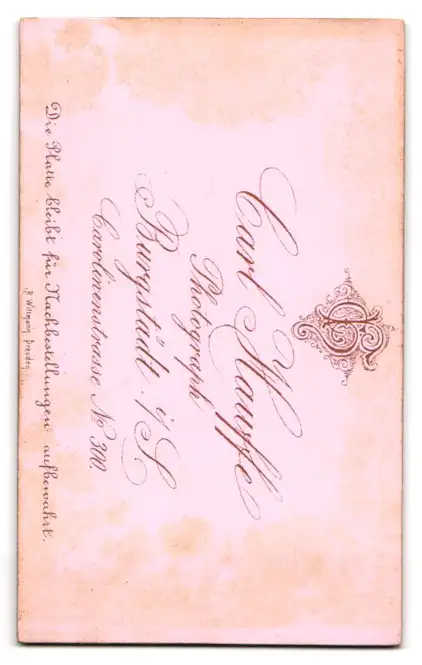 Carl Hauffe
Photograph
Burgstädt i/S.
Carolinenstrasse No 300.
Die Platte bleibt für Nachbestellungen aufbewahrt.
Dresden.